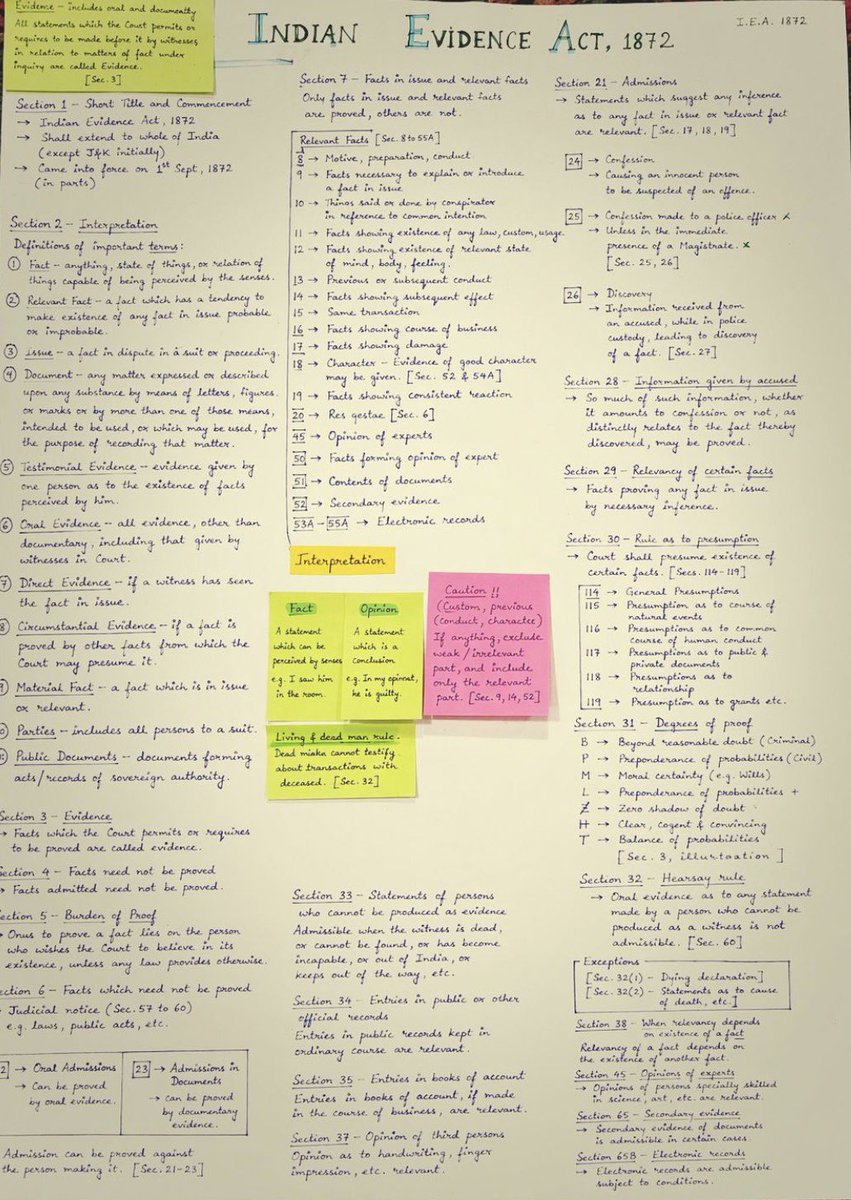 Evidence - includes oral and documentty
All statements which the Court permits or
requires to be made before it by witnesses,
in relation to matters of fact under
inquiry are called Evidence.
[Sec. 3]
INDIAN EVIDENCE ACT, 1872
I.E.A. 1872
Section 1 - Short Title and Commencement
→ Indian Evidence Act, 1872
→ Shall extend to whole of India
(except J&K initially)
→ Came into force on 1st Sept, 1872
(in parts)
Section 2 - Interpretation
Definitions of important terms:
① Fact - anything, state of things, or relation of
things capable of being perceived by the senses.
② Relevant Fact - a fact which has a tendency to
make existence of any fact in issue probable
or improbable.
③ Issue - a fact in dispute in a suit or proceeding.
④ Document - any matter expressed or described
upon any substance by means of letters, figures,
or marks or by more than one of those means,
intended to be used, or which may be used, for
the purpose of recording that matter.
⑤ Testimonial Evidence - evidence given by
one person as to the existence of facts
perceived by him.
⑥ Oral Evidence - all evidence, other than
documentary, including that given by
witnesses in Court.
7 Direct Evidence - if a witness has seen
the fact in issue.
8 Circumstantial Evidence - if a fact is
proved by other facts from which the
Court may presume it.
Material Fact - a fact which is in issue
or relevant.
Parties - includes all persons to a suit.
Public Documents - documents forming
acts/records of sovereign authority.
Section 3 - Evidence
→ Facts which the Court permits or requires
to be proved are called evidence.
Section 4 - Facts need not be proved
→ Facts admitted need not be proved.
Section 5 - Burden of Proof
→ Onus to prove a fact lies on the person
who wishes the Court to believe in its
existence, unless any law provides otherwise.
ection 6 - Facts which need not be proved
Judicial notice (Sec. 57 to 60)
e.g. laws, public acts, etc.
2 → Oral Admissions
→ Can be proved
by oral evidence.
23 → Admissions in
Documents
→ can be proved
by documentary
evidence.
Admission can be proved against
the person making it. [Sec. 21-23]
Section 7 - Facts in issue and relevant facts
Only facts in issue and relevant facts
are proved, others are not.
Relevant Facts [Sec. 8 to 55A]
8 → Motive, preparation, conduct
9 → Facts necessary to explain or introduce
a fact in issue
10 → Things said or done by conspirator
in reference to common intention
11 → Facts showing existence of any law, custom, usage.
12 → Facts showing existence of relevant state
of mind, body, feeling.
13 → Previous or subsequent conduct
14 → Facts showing subsequent effect
15 → Same transaction
16 → Facts showing course of business
17 → Facts showing damage
18 → Character - Evidence of good character
may be given. [Sec. 52 & 54A]
19 → Facts showing consistent reaction
20 → Res gestae [Sec. 6]
45 → Opinion of experts
50 → Facts forming opinion of expert
51 → Contents of documents
52 → Secondary evidence
53A - 55A → Electronic records
Interpretation
Fact
A statement
which can be
perceived by senses
e.g. I saw him
in the room.
Opinion
A statement
which is a
conclusion
e.g. In my opinoat,
he is guilty.
Caution !!
(Custom, previous
(conduct, character)
If anything, exclude
weak/irrelevant
part, and include
only the relevant
part. [Sec. 9, 14, 52]
Living & dead man rule.
Dead miska cannot testify
about transactions with
deceased. [Sec. 32]
Section 33 - Statements of persons
who cannot be produced as evidence
Admissible when the witness is dead,
or cannot be found, or has become
incapable, or out of India, or
keeps out of the way, etc.
Section 34 - Entries in public or other
official records
Entries in public records kept in
ordinary course are relevant.
Section 35 - Entries in books of account
Entries in books of account, if made
in the course of business, are relevant.
Section 37 - Opinion of third persons
Opinion as to handwriting, finger
impression, etc. relevant.
Section 21 - Admissions
→ Statements which suggest any inference
as to any fact in issue or relevant fact
are relevant. [Sec. 17, 18, 19]
24 → Confession
→ Causing an innocent person
to be suspected of an offence.
25 → Confession made to a police officer ×
→ Unless in the immediate
presence of a Magistrate. ×
[Sec. 25, 26]
26 → Discovery
→ Information received from
an accused, while in police
custody, leading to discovery
of a fact. [Sec. 27]
Section 28 - Information given by accused
→ So much of such information, whether
it amounts to confession or not, as
distinctly relates to the fact thereby
discovered, may be proved.
Section 29 - Relevancy of certain facts
→ Facts proving any fact in issue
by necessary inference.
Section 30 - Rule as to presumption
→ Court shall presume existence of
certain facts. [Secs. 114-119]
114 → General Presumptions
115 → Presumption as to course of
natural events
116 → Presumptions as to common
course of human conduct
117 → Presumptions as to public &
private documents
118 → Presumptions as to
relationship
119 → Presumption as to grants etc.
Section 31 - Degrees of proof
B → Beyond reasonable doubt (Criminal)
P → Preponderance of probabilities (Civil)
M → Moral certainty (e.g. Wills)
L → Preponderance of probabilities +
Z → Zero shadow of doubt
H → Clear, cogent & convincing
T → Balance of probabilities
[Sec. 3, illurtoation]
Section 32 - Hearsay rule
→ Oral evidence as to any statement
made by a person who cannot be
produced as a witness is not
admissible. [Sec. 60]
Exceptions
[Sec. 32(1) - Dying declaration]
[Sec. 32(2) - Statements as to cause
of death, etc.]
Section 38 - When relevancy depends
on existence of a fact
Relevancy of a fact depends on
the existence of another fact.
Section 45 - Opinions of experts
→ Opinions of persons specially skilled
in science, art, etc. are relevant.
Section 65 - Secondary evidence
→ Secondary evidence of documents
is admissible in certain cases
Section 65B - Electronic records
→ Electronic records are admissible
subject to conditions.